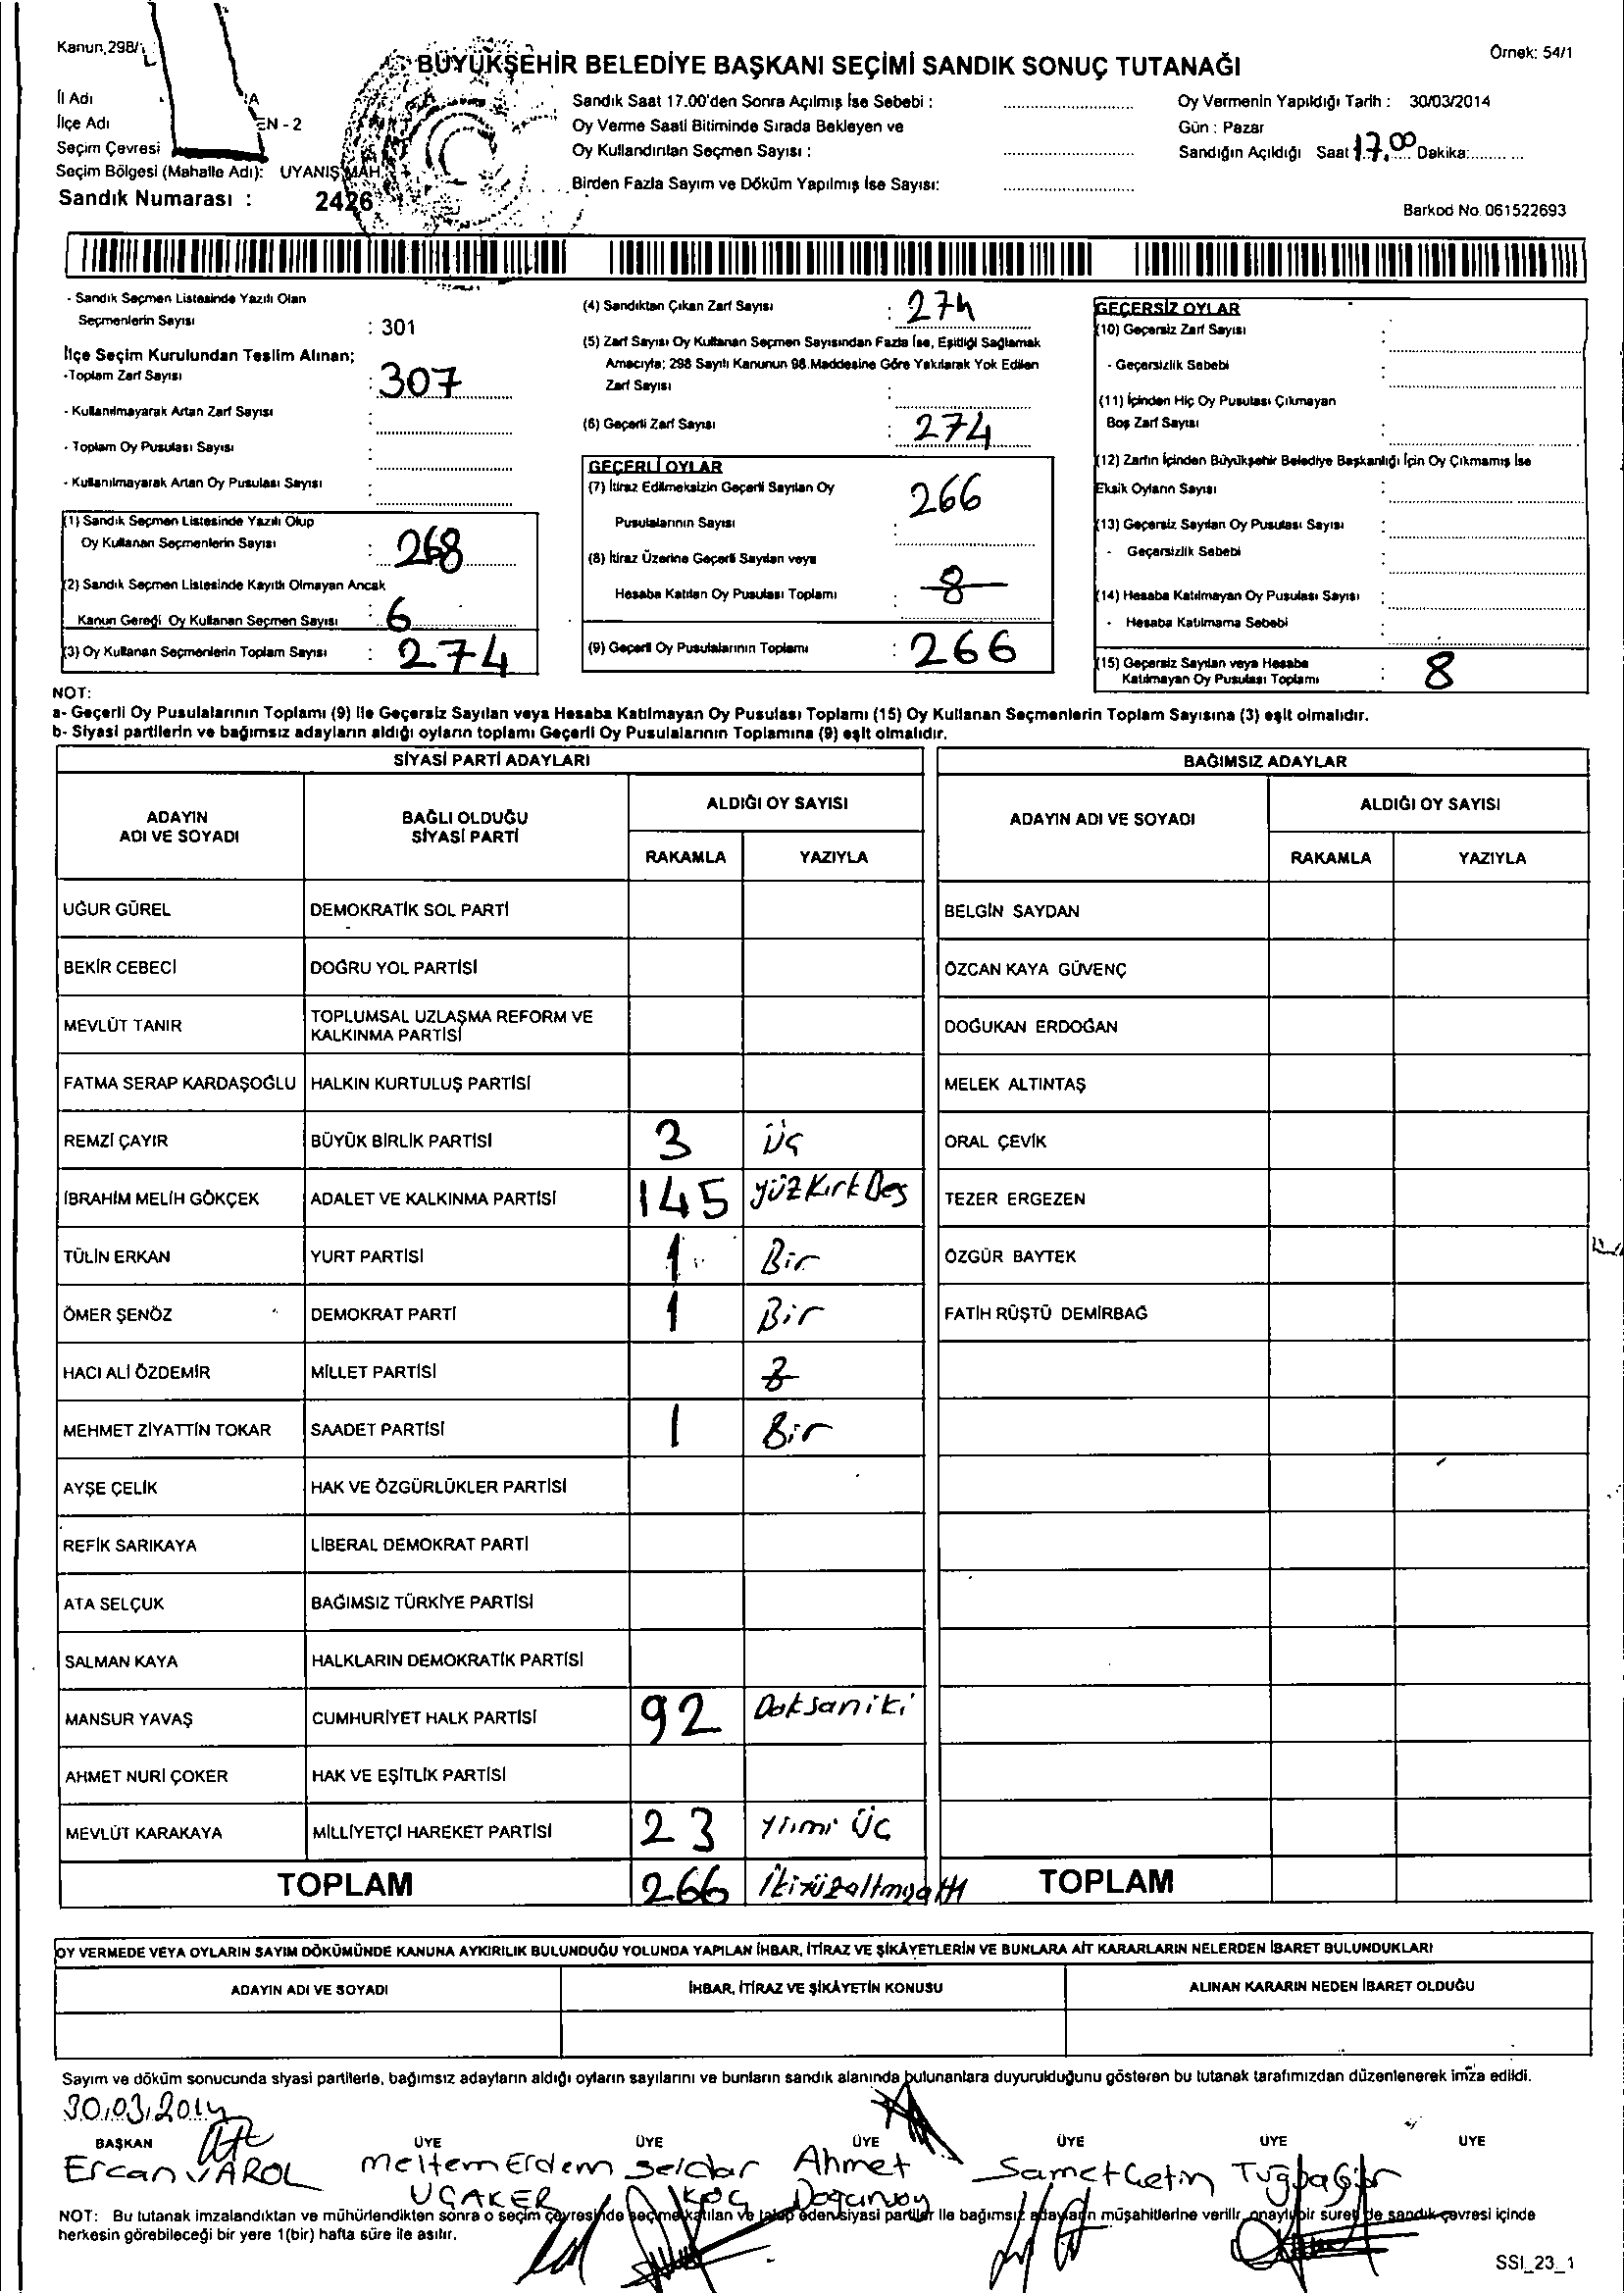 Kanun,298/
Örnek: 54/1
BÜYÜKŞEHİR BELEDİYE BAŞKANI SEÇİMİ SANDIK SONUÇ TUTANAĞI
İl Adı
İlçe Adı EN - 2
Seçim Çevresi
Seçim Bölgesi (Mahalle Adı): UYANIŞ MAH.
Sandık Numarası : 2426
Sandık Saat 17.00'den Sonra Açılmış İse Sebebi :
Oy Verme Saati Bitiminde Sırada Bekleyen ve
Oy Kullandırılan Seçmen Sayısı :
Birden Fazla Sayım ve Döküm Yapılmış İse Sayısı:
Oy Vermenin Yapıldığı Tarih : 30/03/2014
Gün : Pazar
Sandığın Açıldığı Saat 17.00 Dakika:
Barkod No. 061522693
- Sandık Seçmen Listesinde Yazılı Olan
Seçmenlerin Sayısı : 301
İlçe Seçim Kurulundan Teslim Alınan;
-Toplam Zarf Sayısı : 307
- Kullanılmayarak Artan Zarf Sayısı :
- Toplam Oy Pusulası Sayısı :
- Kullanılmayarak Artan Oy Pusulası Sayısı :
(1) Sandık Seçmen Listesinde Yazılı Olup
Oy Kullanan Seçmenlerin Sayısı : 268
(2) Sandık Seçmen Listesinde Kayıtlı Olmayan Ancak
Kanun Gereği Oy Kullanan Seçmen Sayısı : 6
(3) Oy Kullanan Seçmenlerin Toplam Sayısı : 274
(4) Sandıktan Çıkan Zarf Sayısı : 274
(5) Zarf Sayısı Oy Kullanan Seçmen Sayısından Fazla İse, Eşitliği Sağlamak
Amacıyla; 298 Sayılı Kanunun 98.Maddesine Göre Yakılarak Yok Edilen
Zarf Sayısı :
(6) Geçerli Zarf Sayısı : 274
GEÇERLİ OYLAR
(7) İtiraz Edilmeksizin Geçerli Sayılan Oy
Pusulalarının Sayısı : 266
(8) İtiraz Üzerine Geçerli Sayılan veya
Hesaba Katılan Oy Pusulası Toplamı : 8
(9) Geçerli Oy Pusulalarının Toplamı : 266
GEÇERSİZ OYLAR
(10) Geçersiz Zarf Sayısı :
- Geçersizlik Sebebi :
(11) İçinden Hiç Oy Pusulası Çıkmayan
Boş Zarf Sayısı :
(12) Zarfın İçinden Büyükşehir Belediye Başkanlığı İçin Oy Çıkmamış İse
Eksik Oyların Sayısı :
(13) Geçersiz Sayılan Oy Pusulası Sayısı :
- Geçersizlik Sebebi :
(14) Hesaba Katılmayan Oy Pusulası Sayısı :
- Hesaba Katılmama Sebebi :
(15) Geçersiz Sayılan veya Hesaba
Katılmayan Oy Pusulası Toplamı : 8
NOT:
a- Geçerli Oy Pusulalarının Toplamı (9) ile Geçersiz Sayılan veya Hesaba Katılmayan Oy Pusulası Toplamı (15) Oy Kullanan Seçmenlerin Toplam Sayısına (3) eşit olmalıdır.
b- Siyasi partilerin ve bağımsız adayların aldığı oyların toplamı Geçerli Oy Pusulalarının Toplamına (9) eşit olmalıdır.
SİYASİ PARTİ ADAYLARI BAĞIMSIZ ADAYLAR
ADAYIN ADI VE SOYADI BAĞLI OLDUĞU SİYASİ PARTİ ALDIĞI OY SAYISI ADAYIN ADI VE SOYADI ALDIĞI OY SAYISI
RAKAMLA YAZIYLA RAKAMLA YAZIYLA
UĞUR GÜREL DEMOKRATİK SOL PARTİ BELGİN SAYDAN
BEKİR CEBECİ DOĞRU YOL PARTİSİ ÖZCAN KAYA GÜVENÇ
MEVLÜT TANIR TOPLUMSAL UZLAŞMA REFORM VE KALKINMA PARTİSİ DOĞUKAN ERDOĞAN
FATMA SERAP KARDAŞOĞLU HALKIN KURTULUŞ PARTİSİ MELEK ALTINTAŞ
REMZİ ÇAYIR BÜYÜK BİRLİK PARTİSİ 3 üç ORAL ÇEVİK
İBRAHİM MELİH GÖKÇEK ADALET VE KALKINMA PARTİSİ 145 yüzKırkBeş TEZER ERGEZEN
TÜLİN ERKAN YURT PARTİSİ 1 Bir ÖZGÜR BAYTEK
ÖMER ŞENÖZ DEMOKRAT PARTİ 1 Bir FATİH RÜŞTÜ DEMİRBAĞ
HACI ALİ ÖZDEMİR MİLLET PARTİSİ
MEHMET ZİYATTİN TOKAR SAADET PARTİSİ 1 Bir
AYŞE ÇELİK HAK VE ÖZGÜRLÜKLER PARTİSİ
REFİK SARIKAYA LİBERAL DEMOKRAT PARTİ
ATA SELÇUK BAĞIMSIZ TÜRKİYE PARTİSİ
SALMAN KAYA HALKLARIN DEMOKRATİK PARTİSİ
MANSUR YAVAŞ CUMHURİYET HALK PARTİSİ 92 Doksaniki
AHMET NURİ ÇOKER HAK VE EŞİTLİK PARTİSİ
MEVLÜT KARAKAYA MİLLİYETÇİ HAREKET PARTİSİ 23 Yiimi Üç
TOPLAM 266 İkiyüzaltmışaltı TOPLAM
OY VERMEDE VEYA OYLARIN SAYIM DÖKÜMÜNDE KANUNA AYKIRILIK BULUNDUĞU YOLUNDA YAPILAN İHBAR, İTİRAZ VE ŞİKÂYETLERİN VE BUNLARA AİT KARARLARIN NELERDEN İBARET BULUNDUKLARI
ADAYIN ADI VE SOYADI İHBAR, İTİRAZ VE ŞİKÂYETİN KONUSU ALINAN KARARIN NEDEN İBARET OLDUĞU
Sayım ve döküm sonucunda siyasi partilerle, bağımsız adayların aldığı oyların sayılarını ve bunların sandık alanında bulunanlara duyurulduğunu gösteren bu tutanak tarafımızdan düzenlenerek imza edildi.
30.03.2014
BAŞKAN ÜYE ÜYE ÜYE ÜYE ÜYE ÜYE
Ercan VAROL Meltem Erdem UÇAKER Serdar KOÇ Ahmet Doğansoy Samet Çetin
NOT: Bu tutanak imzalandıktan ve mühürlendikten sonra o seçim çevresinde seçme katılan ve talep eden siyasi partiler ile bağımsız adayların müşahitlerine verilir, onaylı bir sureti de sandık çevresi içinde
herkesin görebileceği bir yere 1(bir) hafta süre ile asılır.
SSI_23_1